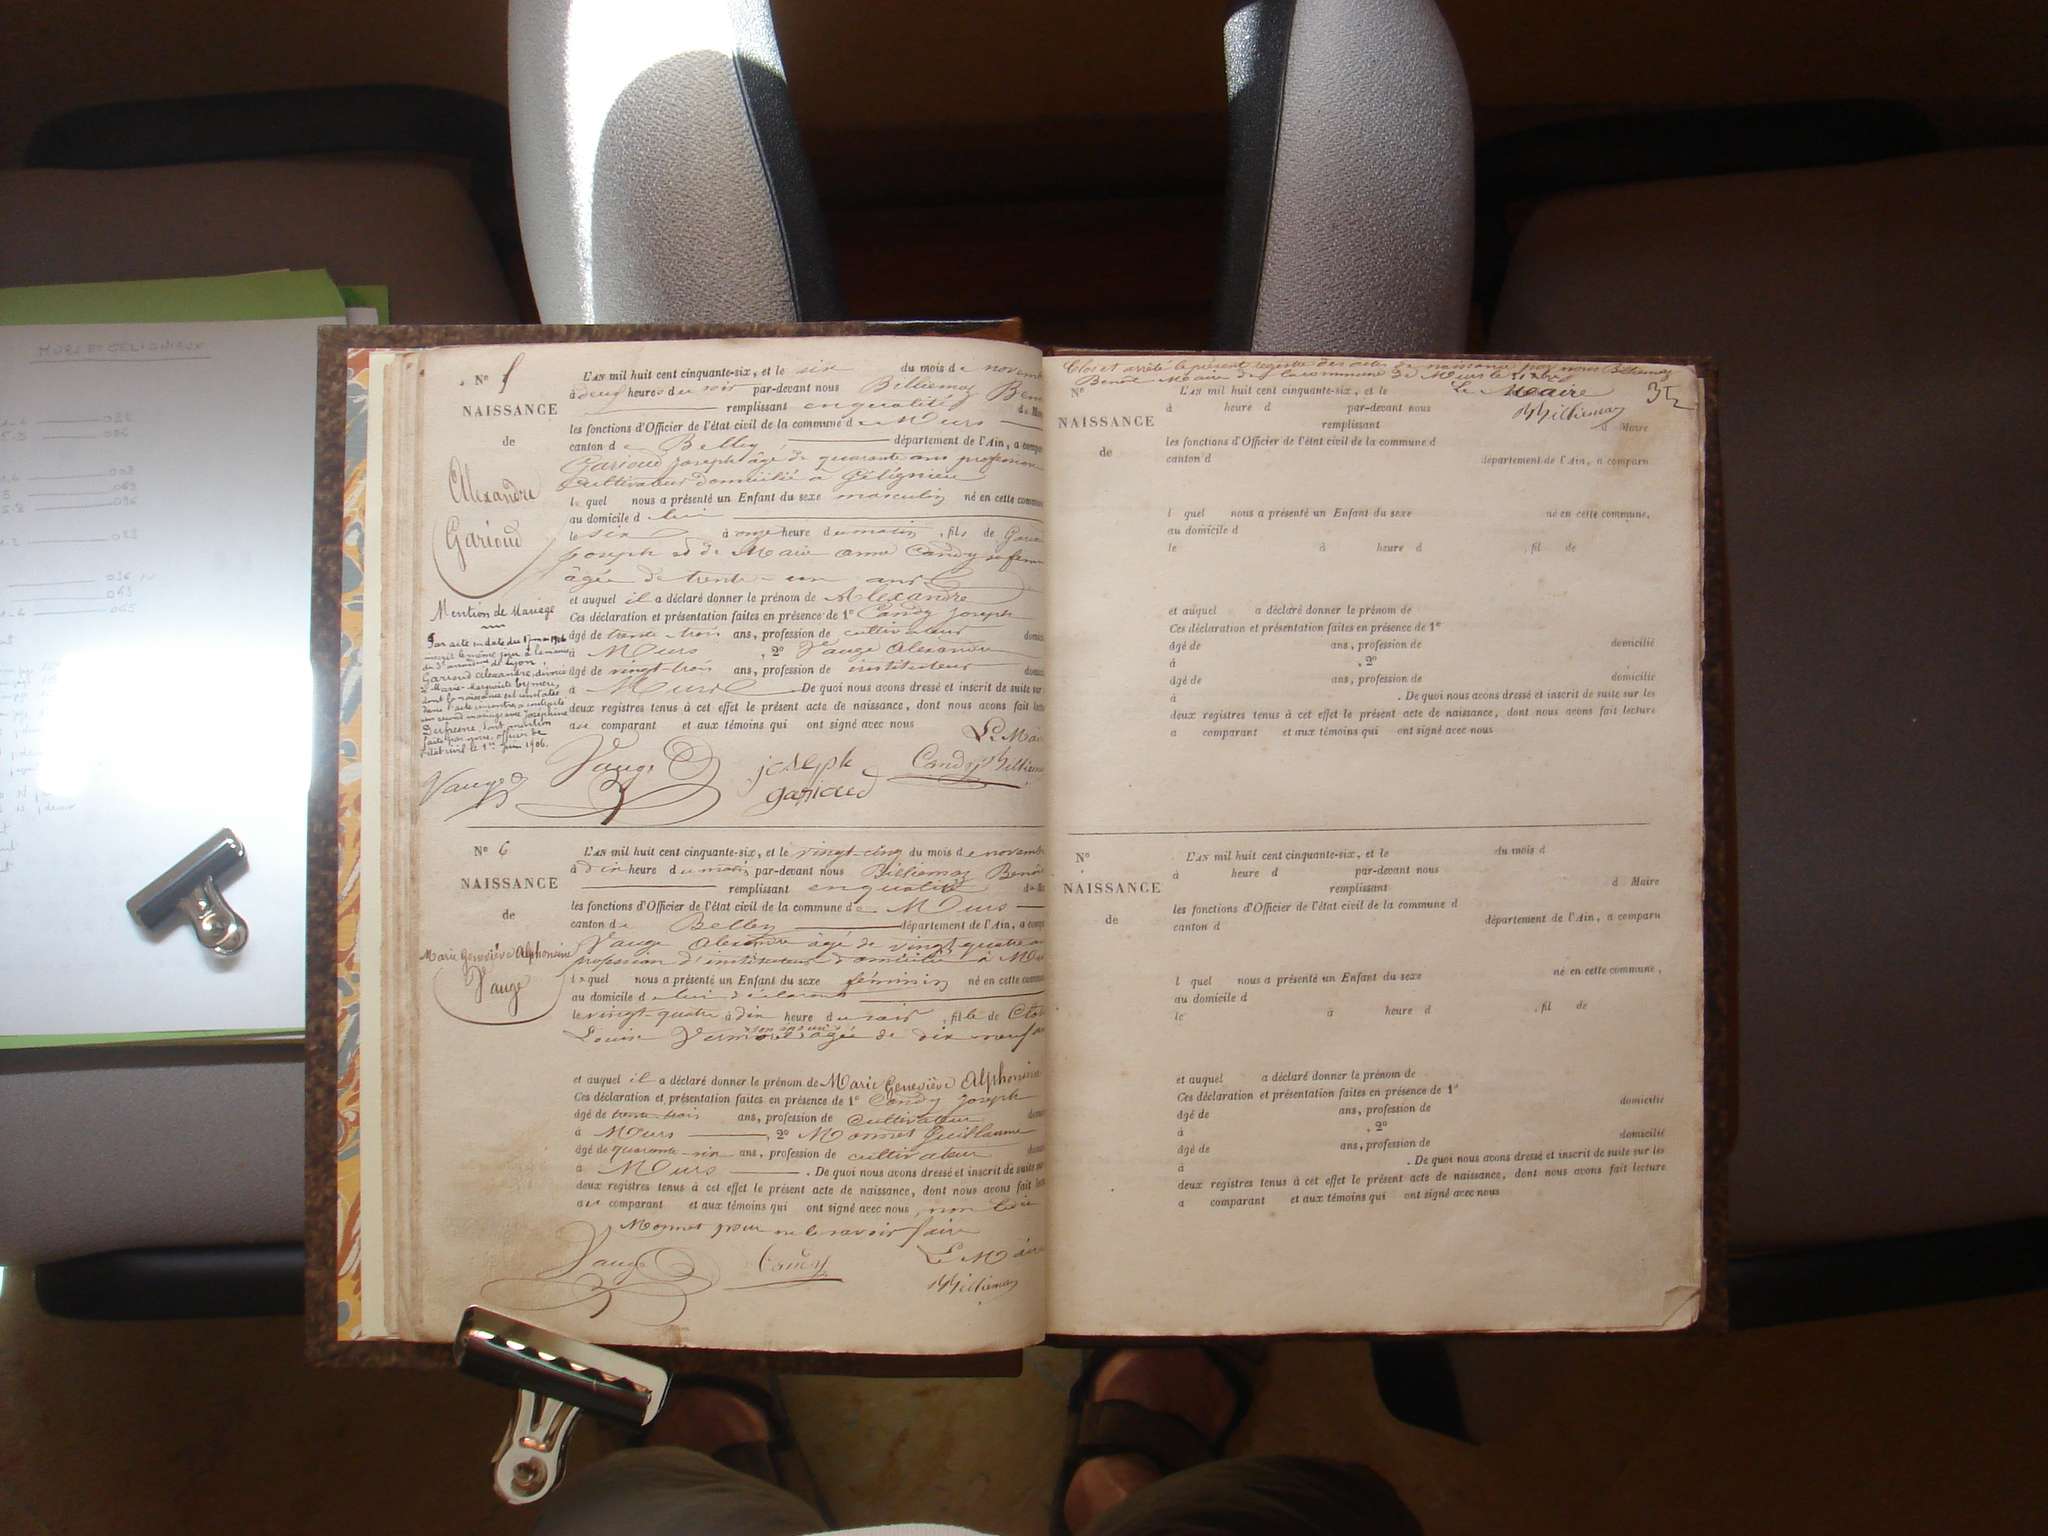 MURS ET GELIGNIEUX
N° 5
NAISSANCE
de
Alexandre
Garioud
L'AN mil huit cent cinquante-six, et le six du mois de novemb
à deux heures du soir par-devant nous Billiemaz Ben
remplissant en qualité d
les fonctions d'Officier de l'état civil de la commune de Murs
canton de Belley département de l'Ain, a compa
Garioud Joseph âgé de quarante ans profession
Cultivateur domicilié à Gélignieu
lequel nous a présenté un Enfant du sexe masculin né en cette commune
au domicile de lui
le six à onze heure du matin, fils de Gariou
Joseph et de Marie anne Candy sa femme
âgée de trente-un ans
et auquel il a déclaré donner le prénom de Alexandre
Ces déclaration et présentation faites en présence de 1° Candy Joseph
âgé de trente-trois ans, profession de cultivateur domici
à Murs, 2° Vauge Alexandre
âgé de vingt-trois ans, profession de instituteur domici
à Murs. De quoi nous avons dressé et inscrit de suite sur
deux registres tenus à cet effet le présent acte de naissance, dont nous avons fait lectu
au comparant et aux témoins qui ont signé avec nous
Le Mai
Mention de Mariage
Par acte en date du 17 mai 1906
inscrit le même jour à la mairie
du 3e arrondissement de Lyon,
Garioud Alexandre, divorcé
de Marie-Marguerite
dont la naissance est constatée
dans l'acte ci-contre, a contracté
un second mariage avec Joséphine
Dufresne, dont mention
faite par nous, officier de
l'état civil le 1er juin 1906.
Vauge
Vauge joseph garioud Candy Billiemaz
N° 6
NAISSANCE
de
Marie Geneviève Alphonsine
Vauge
L'AN mil huit cent cinquante-six, et le vingt-cinq du mois de novembre
à dix heure du matin par-devant nous Billiemaz Benoît
remplissant en qualité d
les fonctions d'Officier de l'état civil de la commune de Murs
canton de Belley département de l'Ain, a compa
Vauge Alexandre âgé de vingt quatre an
profession d'instituteur domicilié à Mur
lequel nous a présenté un Enfant du sexe féminin né en cette commun
au domicile de lui déclarant
le vingt-quatre à dix heure du soir, fille de
Louise âgée de dix neuf an
et auquel il a déclaré donner le prénom de Marie Geneviève Alphonsine
Ces déclaration et présentation faites en présence de 1° Candy Joseph
âgé de trente-trois ans, profession de Cultivateur domi
à Murs, 2° Monnet Guillaume
âgé de quarante-six ans, profession de cultivateur domic
à Murs. De quoi nous avons dressé et inscrit de suite sur
deux registres tenus à cet effet le présent acte de naissance, dont nous avons fait lect
au comparant et aux témoins qui ont signé avec nous, non
Monnet pour ne le savoir faire
Vauge Candy Le Mair
Billiemaz
Clos et arrêté le présent registre des actes de naissance par nous Billiemaz
Benoît Maire de la commune de Murs le 31 Xbre
Le Maire
Billiemaz
352
N°
NAISSANCE
de
L'AN mil huit cent cinquante-six, et le
à heure d par-devant nous
remplissant d Maire
les fonctions d'Officier de l'état civil de la commune d
canton d département de l'Ain, a comparu
l quel nous a présenté un Enfant du sexe né en cette commune,
au domicile d
le à heure d , fil de
et auquel a déclaré donner le prénom de
Ces déclaration et présentation faites en présence de 1°
âgé de ans, profession de domicilié
à , 2°
âgé de ans, profession de domicilié
à . De quoi nous avons dressé et inscrit de suite sur les
deux registres tenus à cet effet le présent acte de naissance, dont nous avons fait lecture
a comparant et aux témoins qui ont signé avec nous
N°
NAISSANCE
de
L'AN mil huit cent cinquante-six, et le du mois d
à heure d par-devant nous
remplissant d Maire
les fonctions d'Officier de l'état civil de la commune d
canton d département de l'Ain, a comparu
l quel nous a présenté un Enfant du sexe né en cette commune,
au domicile d
le à heure d , fil de
et auquel a déclaré donner le prénom de
Ces déclaration et présentation faites en présence de 1°
âgé de ans, profession de domicilié
à , 2°
âgé de ans, profession de domicilié
à . De quoi nous avons dressé et inscrit de suite sur les
deux registres tenus à cet effet le présent acte de naissance, dont nous avons fait lecture
a comparant et aux témoins qui ont signé avec nous